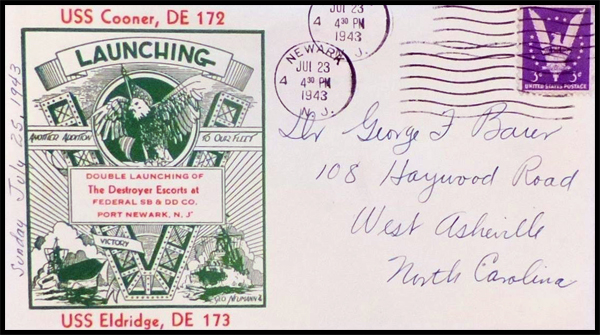 USS Cooner, DE 172
LAUNCHING
ANOTHER ADDITION
TO OUR FLEET
DOUBLE LAUNCHING OF
The Destroyer Escorts at
FEDERAL SB & DD CO.
PORT NEWARK, N. J.
VICTORY
GEO NEUMANN
USS Eldridge, DE 173
Sunday July 25, 1943
JUL 23
4 4 30 PM
1943
N. J.
NEWARK
JUL 23
4 4 30 PM
1943
N. J.
3¢ 3¢
UNITED STATES POSTAGE
Dr George F Baier
108 Haywood Road
West Asheville
North Carolina